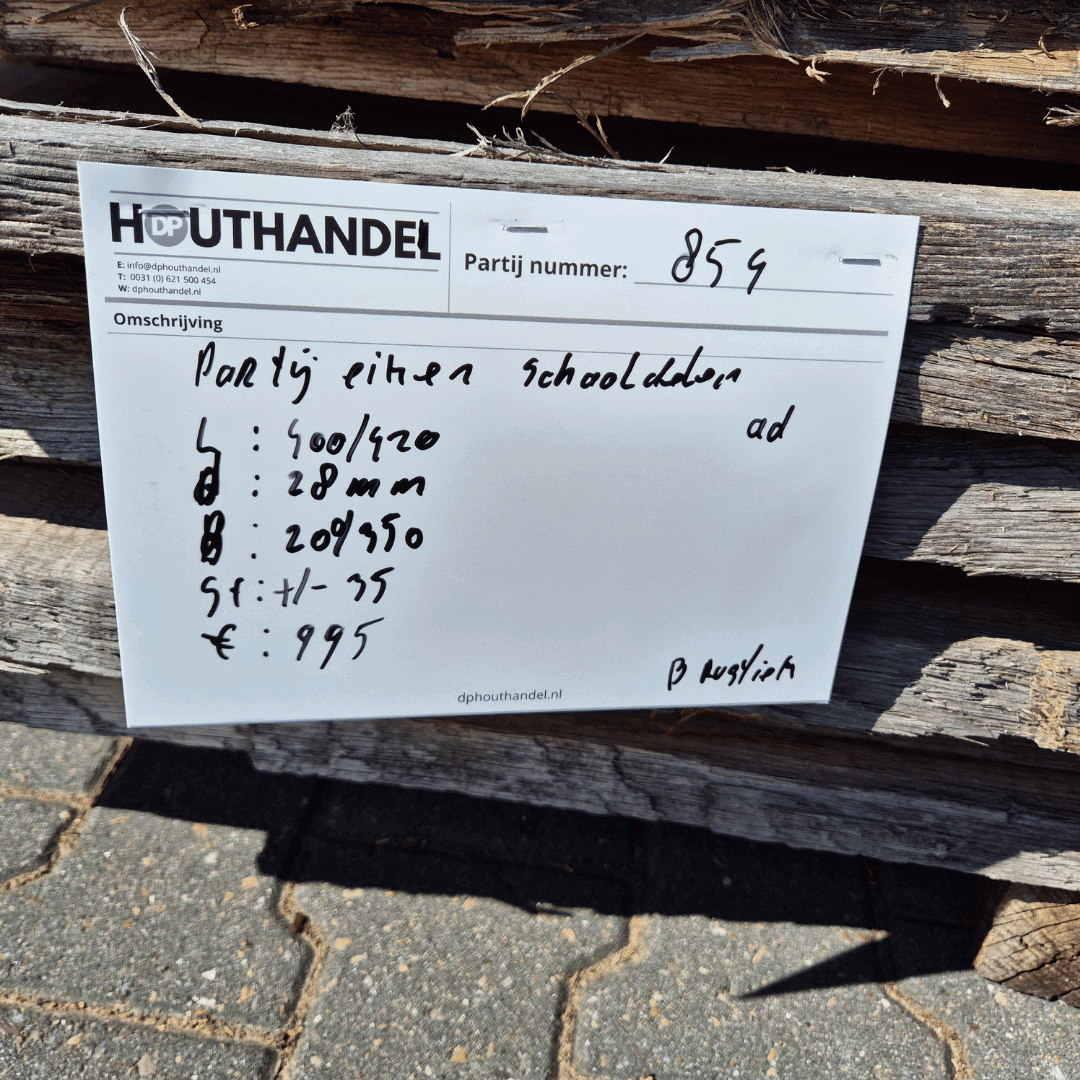 HOUTHANDEL
DP
E: info@dphouthandel.nl
T: 0031 (0) 621 500 454
W: dphouthandel.nl
Partij nummer: 854
Omschrijving
Partij eiken schaaldelen
ad
L : 400/420
: 28 mm
: 200/350
St : +/- 35
€ : 995
B Rustiek
dphouthandel.nl